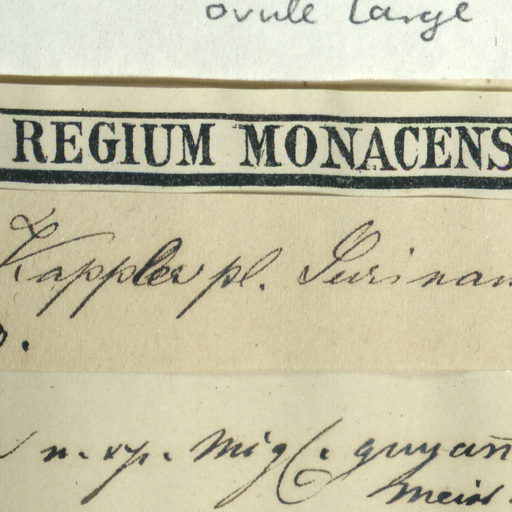 ovule large
REGIUM MONACENS
Kappler pl. Surinam
n. sp. Miq. guyan
Meisn